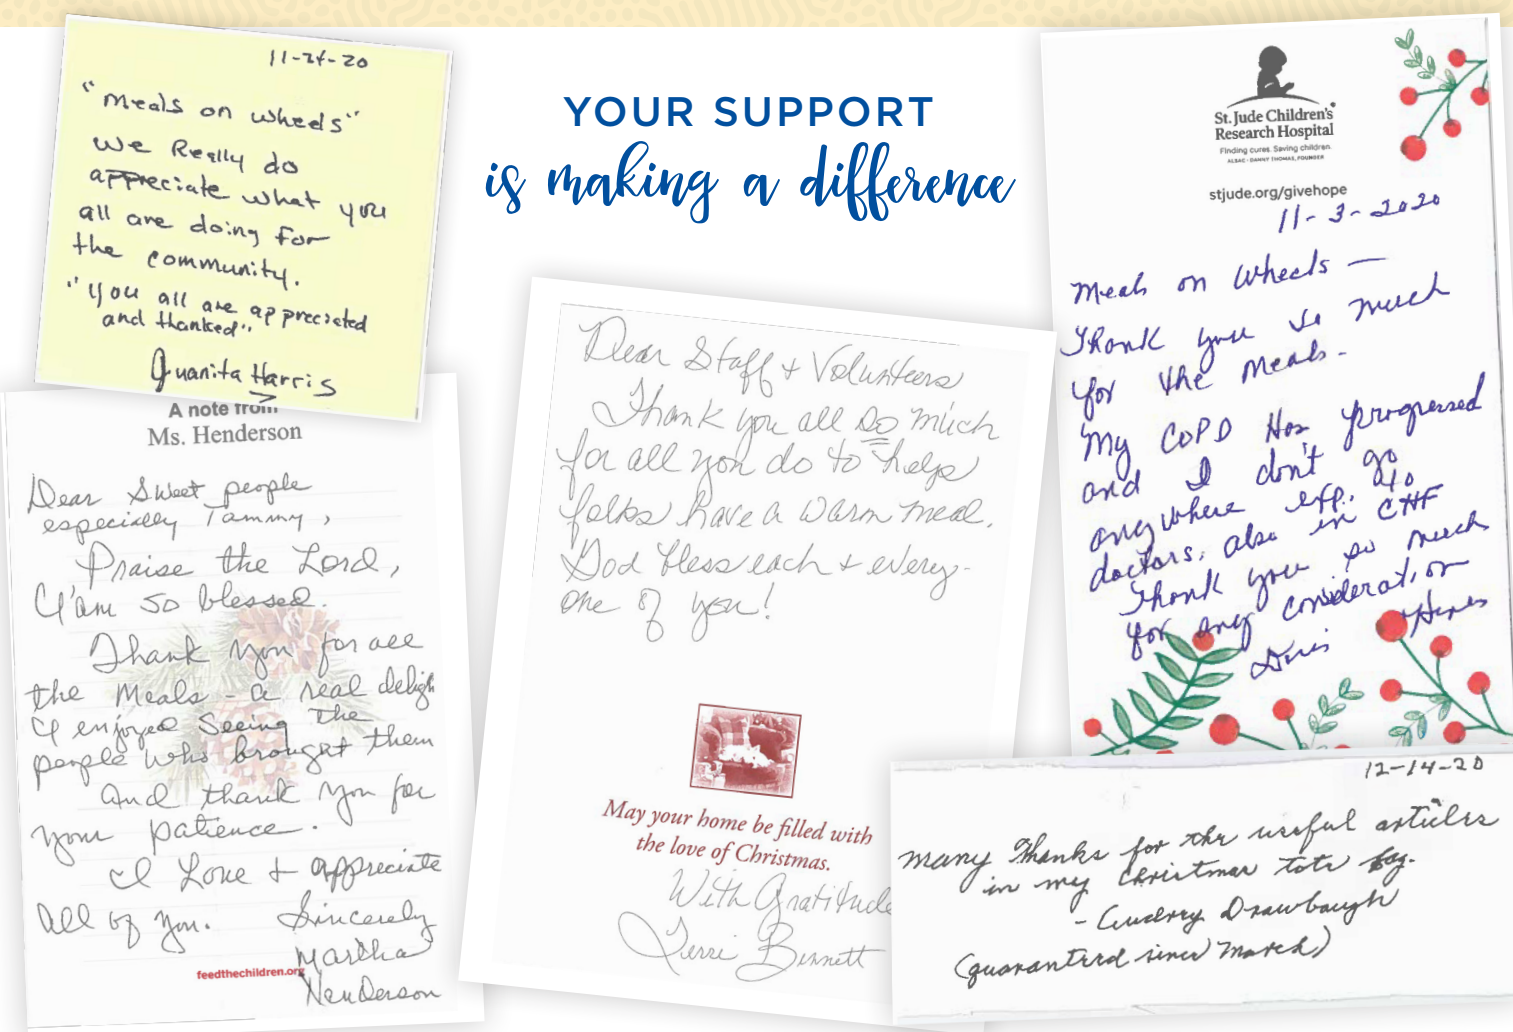 YOUR SUPPORT
is making a difference
11-24-20
"Meals on wheels"
we Really do
appreciate what you
all are doing for
the community.
"you all are appreciated
and thanked"
Juanita Harris
A note from
Ms. Henderson
Dear Sweet people
especially Tammy,
Praise the Lord,
I'am so blessed.
Thank you for all
the Meals - a real deligh
I enjoyed seeing the
people who brought them
and thank you for
your patience.
I Love + appreciate
all of you. Sincerely
Martha
Henderson
feedthechildren.org
Dear Staff + Volunteers
Thank you all so much
for all you do to helps
folks have a warm meal.
God bless each + every-
one of you!
May your home be filled with
the love of Christmas.
With Gratitude
Terri Bennett
St. Jude Children's
Research Hospital
Finding cures. Saving children.
ALSAC • DANNY THOMAS, FOUNDER
stjude.org/givehope
11-3-2020
Meals on Wheels —
Thank you so much
for the meals.
My COPD Has progressed
and I don't go
anywhere eff. to
doctors, also in CHF
Thank you so much
for any consideration
Doris Hines
12-14-20
many Thanks for the useful articles
in my Christmas tote bag.
- Audrey Drawbaugh
(quarantired since March)